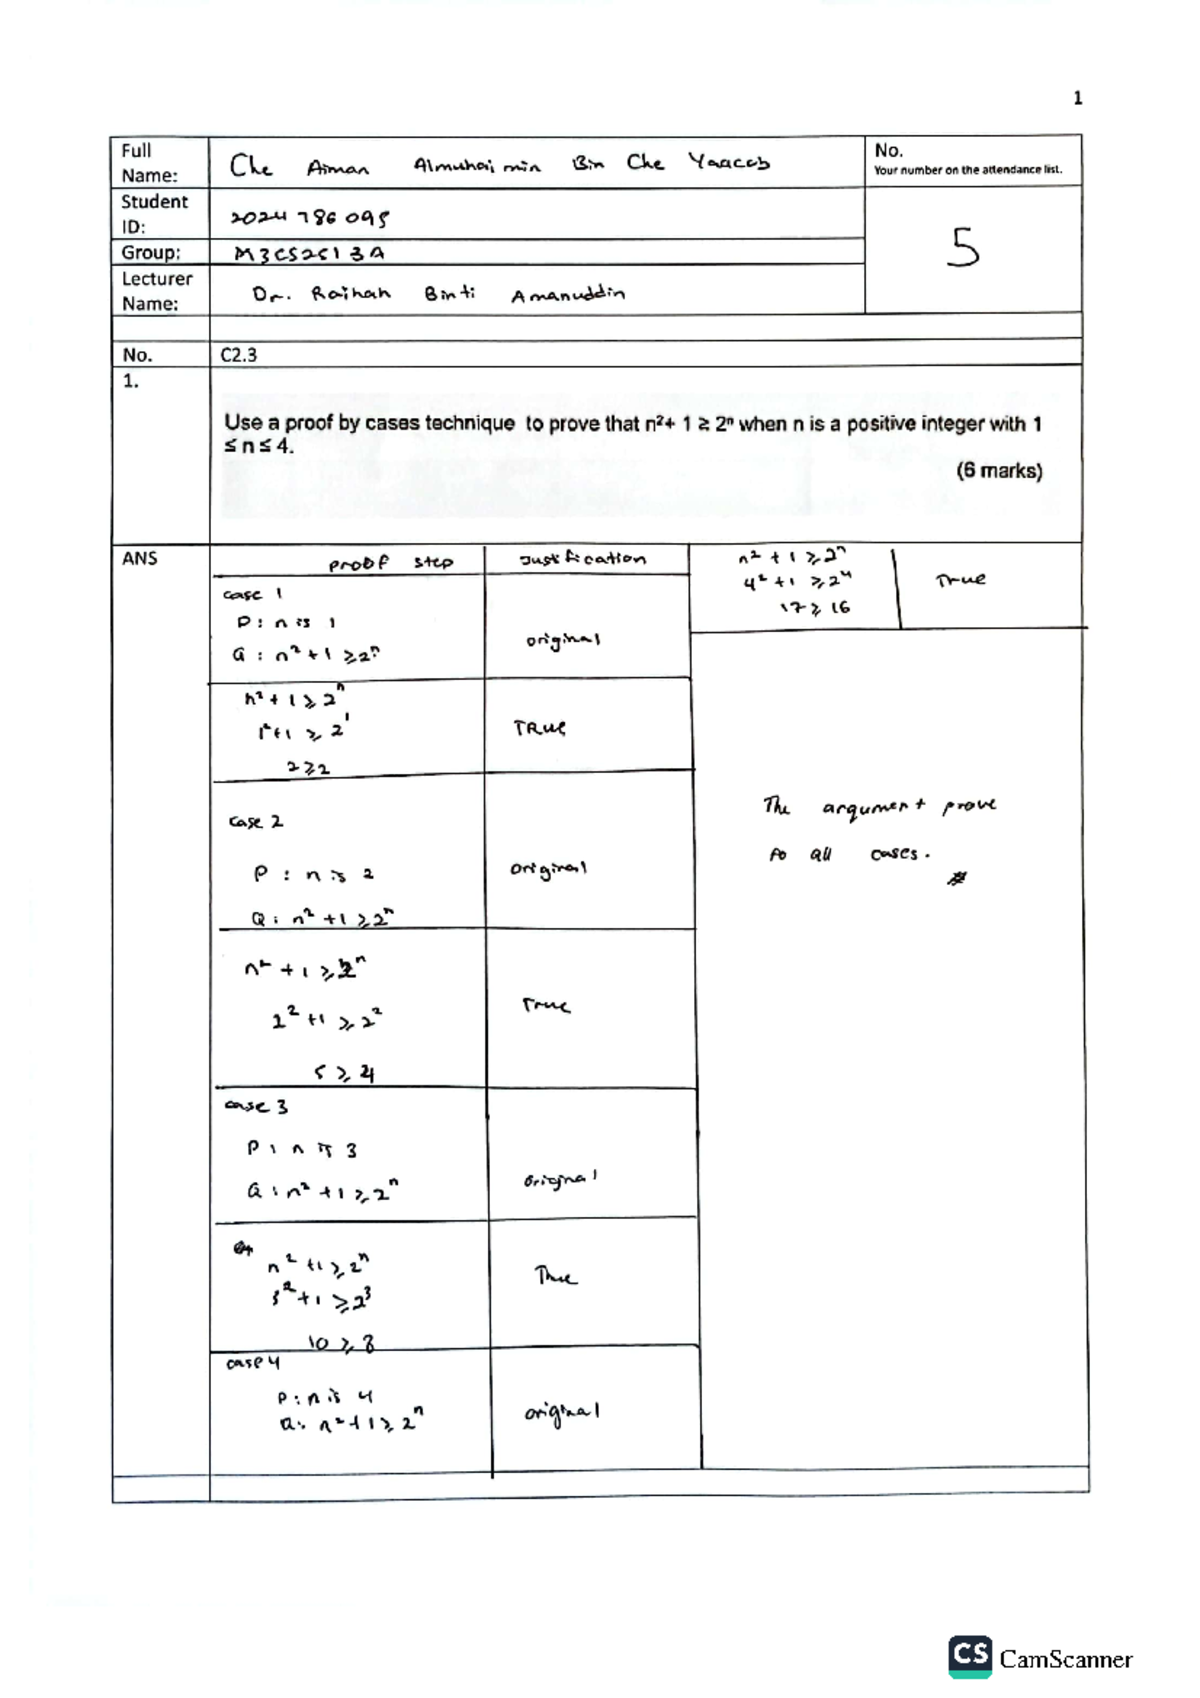 1
Full Name:
Che Aiman Almuhaimin Bin Che Yaacob
No.
Your number on the attendance list.
Student ID:
2024786095
5
Group:
M3CS2513A
Lecturer Name:
Dr. Raihah Binti Amanuddin
No.
C2.3
1.
Use a proof by cases technique to prove that n²+ 1 ≥ 2ⁿ when n is a positive integer with 1
≤ n ≤ 4.
(6 marks)
ANS
proof step
Justification
case 1
P : n is 1
Q : n² + 1 ≥ 2ⁿ
original
n² + 1 ≥ 2ⁿ
1²+1 ≥ 2¹
2 ≥ 2
TRUE
case 2
P : n is 2
Q : n² + 1 ≥ 2ⁿ
original
n² + 1 ≥ 2ⁿ
2² + 1 ≥ 2²
5 ≥ 4
True
case 3
P : n is 3
Q : n² + 1 ≥ 2ⁿ
original
n² + 1 ≥ 2ⁿ
3² + 1 ≥ 2³
10 ≥ 8
True
case 4
P : n is 4
Q : n² + 1 ≥ 2ⁿ
original
n² + 1 ≥ 2ⁿ
4² + 1 ≥ 2⁴
17 ≥ 16
True
The argument prove
to all cases.
#
CS CamScanner